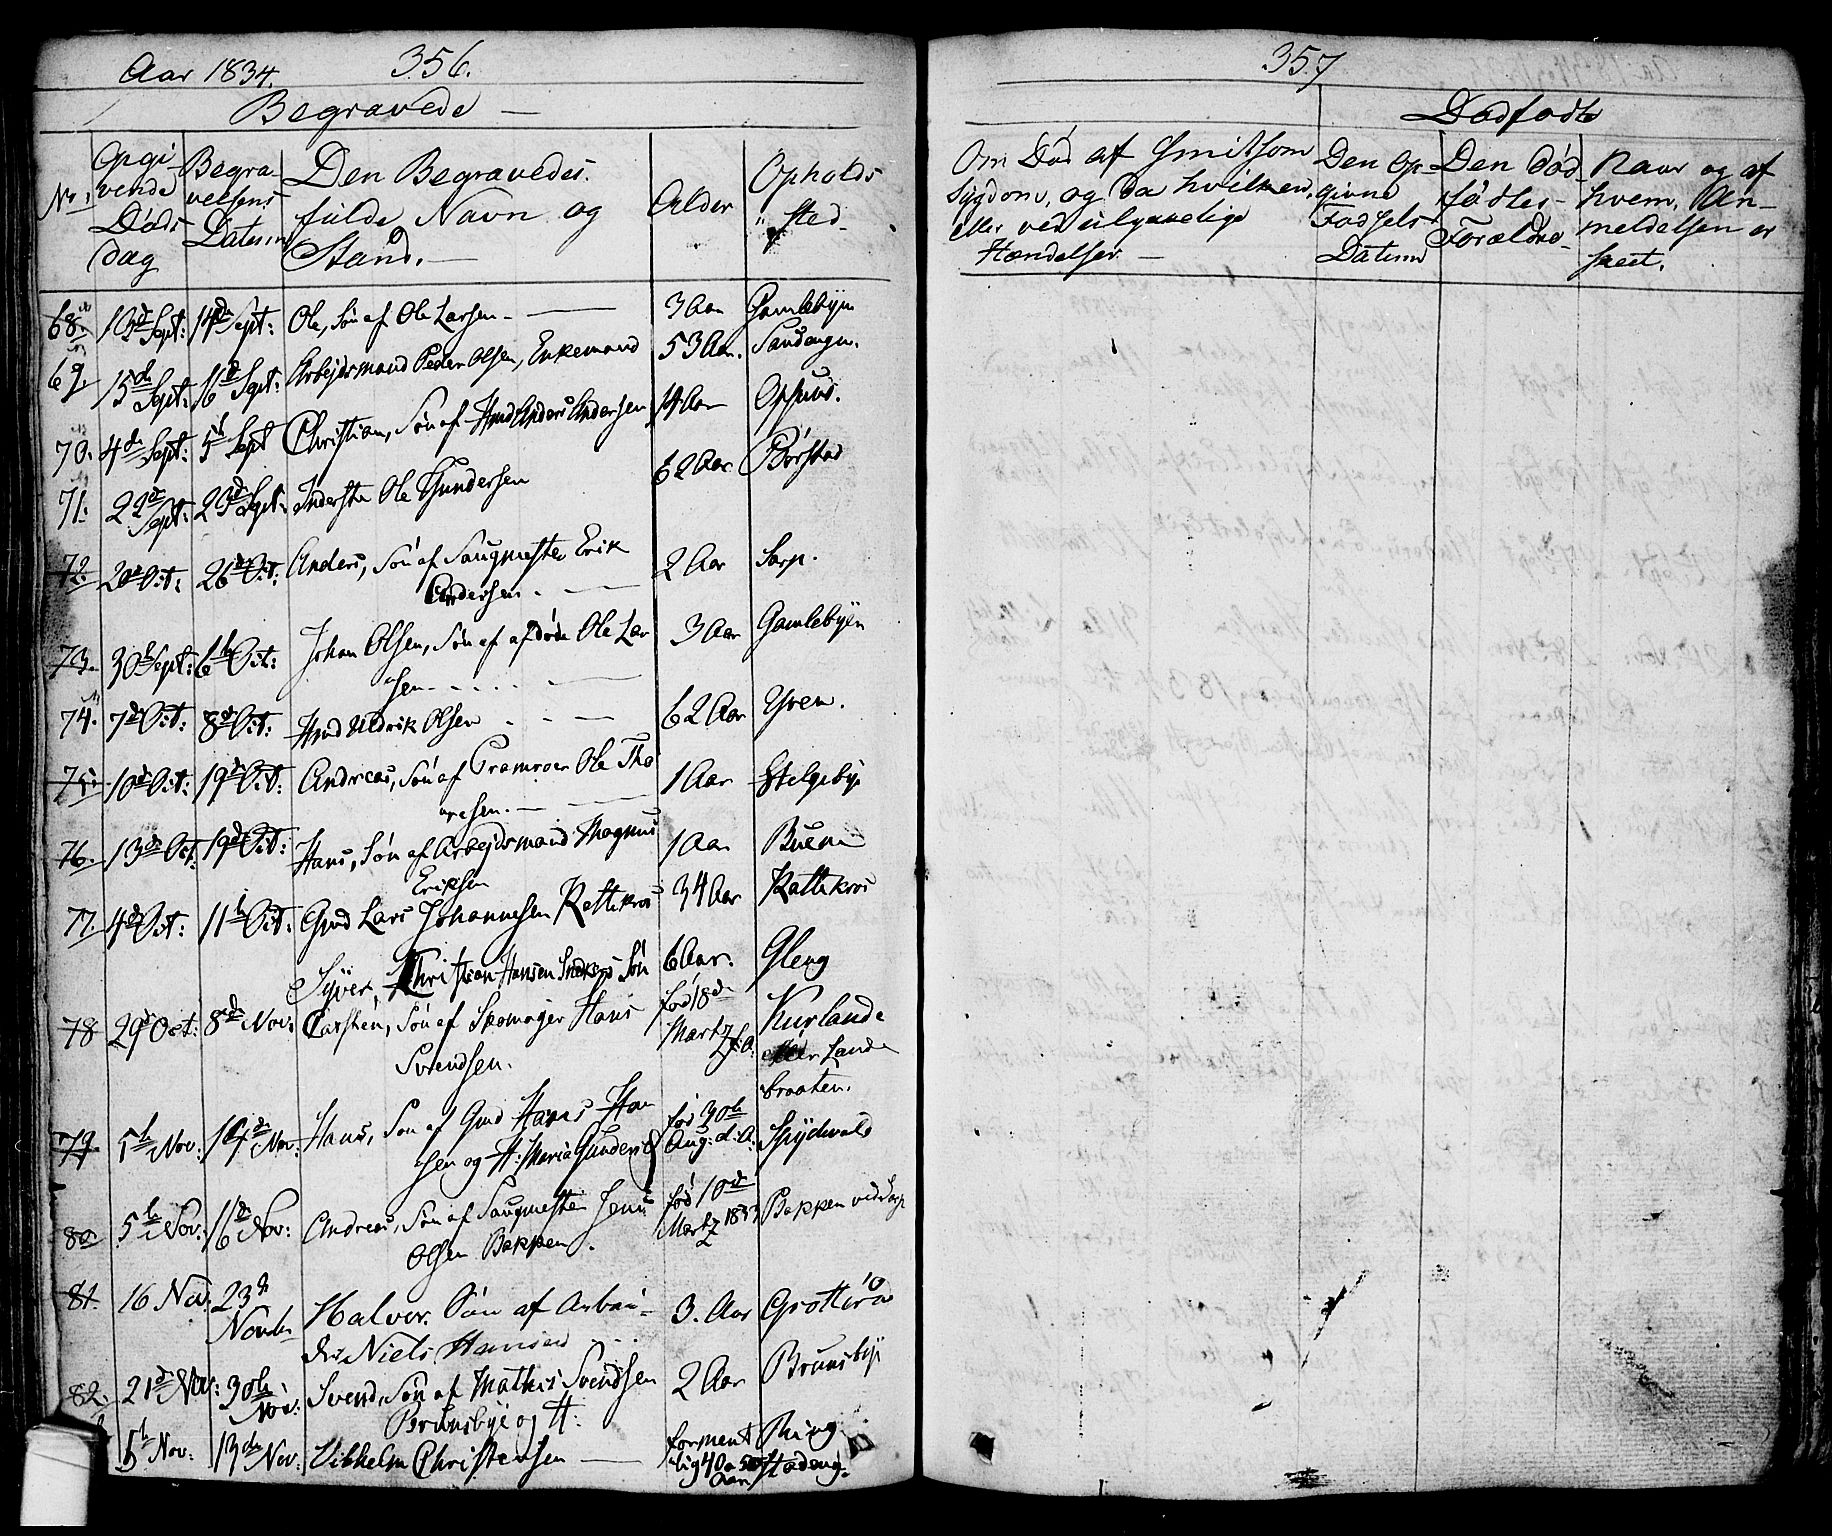 Aar 1834.
356.
Begravede
No:
Opgi
vende
Døds
dag
Begra-
velsens
Datum
Den Begravedes
fulde Navn og
Stand.
Alder
Opholds
sted
68. 13de Sept: 14de Sept: Ole, Søn af Ole Larsen 3 Aar Gamlebyen
69 15de Sept: 16de Sept: Arbejdsmand Peder Olsen, Enkemand 53 Aar. Sandengn.
70. 4de Sept: 5t Sept Christian, Søn af Hmd Anders Andersen Aar Opsuus.
71. 22de Sept: 23de Sept: Inderste Ole Gundersen 62 Aar Børstad
72. 20de Oct: 26de Oct: Anders, Søn af Saugmester Erik
Andersen. 2 Aar Sarp.
73. 30te Sept: 6te Oct: Johan Olsen, Søn af afdøde Ole Lar
sen 3 Aar Gamlebyen
74. 7de Oct: 8de Oct: Hmd Uldrik Olsen 62 Aar Yven.
75. 10de Oct: 19de Oct: Andreas, Søn af Pramroer Ole Tho
resen. 1 Aar Helgebye
76. 13de Oct: 19de Oct: Hans, Søn af Arbejdsmand Magnus
Eriksen 1 Aar Buene
77. 4de Oct: 11te Oct: Gmd Lars Johannesen Kattekros 34 Aar Kattekros
Syver, Christian Hansen Søn 6 Aar. Gleng
78 29de Oct: 8de Nov: Carsten, Søn af Skomager Hans
Svendsen. fød 18de
Martz d:A: Kurlande
eller Lande
braaten.
79. 1te Nov: 14de Nov: Hans, Søn af Gmd Hans Han
sen og H: Maria Gundersd fød 30te
Aug: d:A: Spydevold
80 5te Nov: 16de Nov: Andreas, Søn af Saugmester Jens
Olsen Bakken. fød 10de
Martz 1833 Bakken ved Sarp
81. 16 Nov. 23de
Novbr Halvor. Søn af Arbei-
der Niels Hansen 3. Aar Grotterød
82. 21de Nov: 30te
Nov: Svend, Søn af Mathis Svendsen
Brunsbye og H: 2 Aar Brunsbye
5te Nov: 13de Nov: Vilhelm Christensen forment
lig 40 a 50
Aar Ring
stadeng.
357
Dødfødte
Om Død af Smitsom
Sygdom, og da hvilken,
eller ved ulykkelige
Hændelser.
Den Op
givne
Fødsels
Datum
Den Død
fødtes
Forældre
Naar og af
hvem, An-
meldelsen er
skeet.